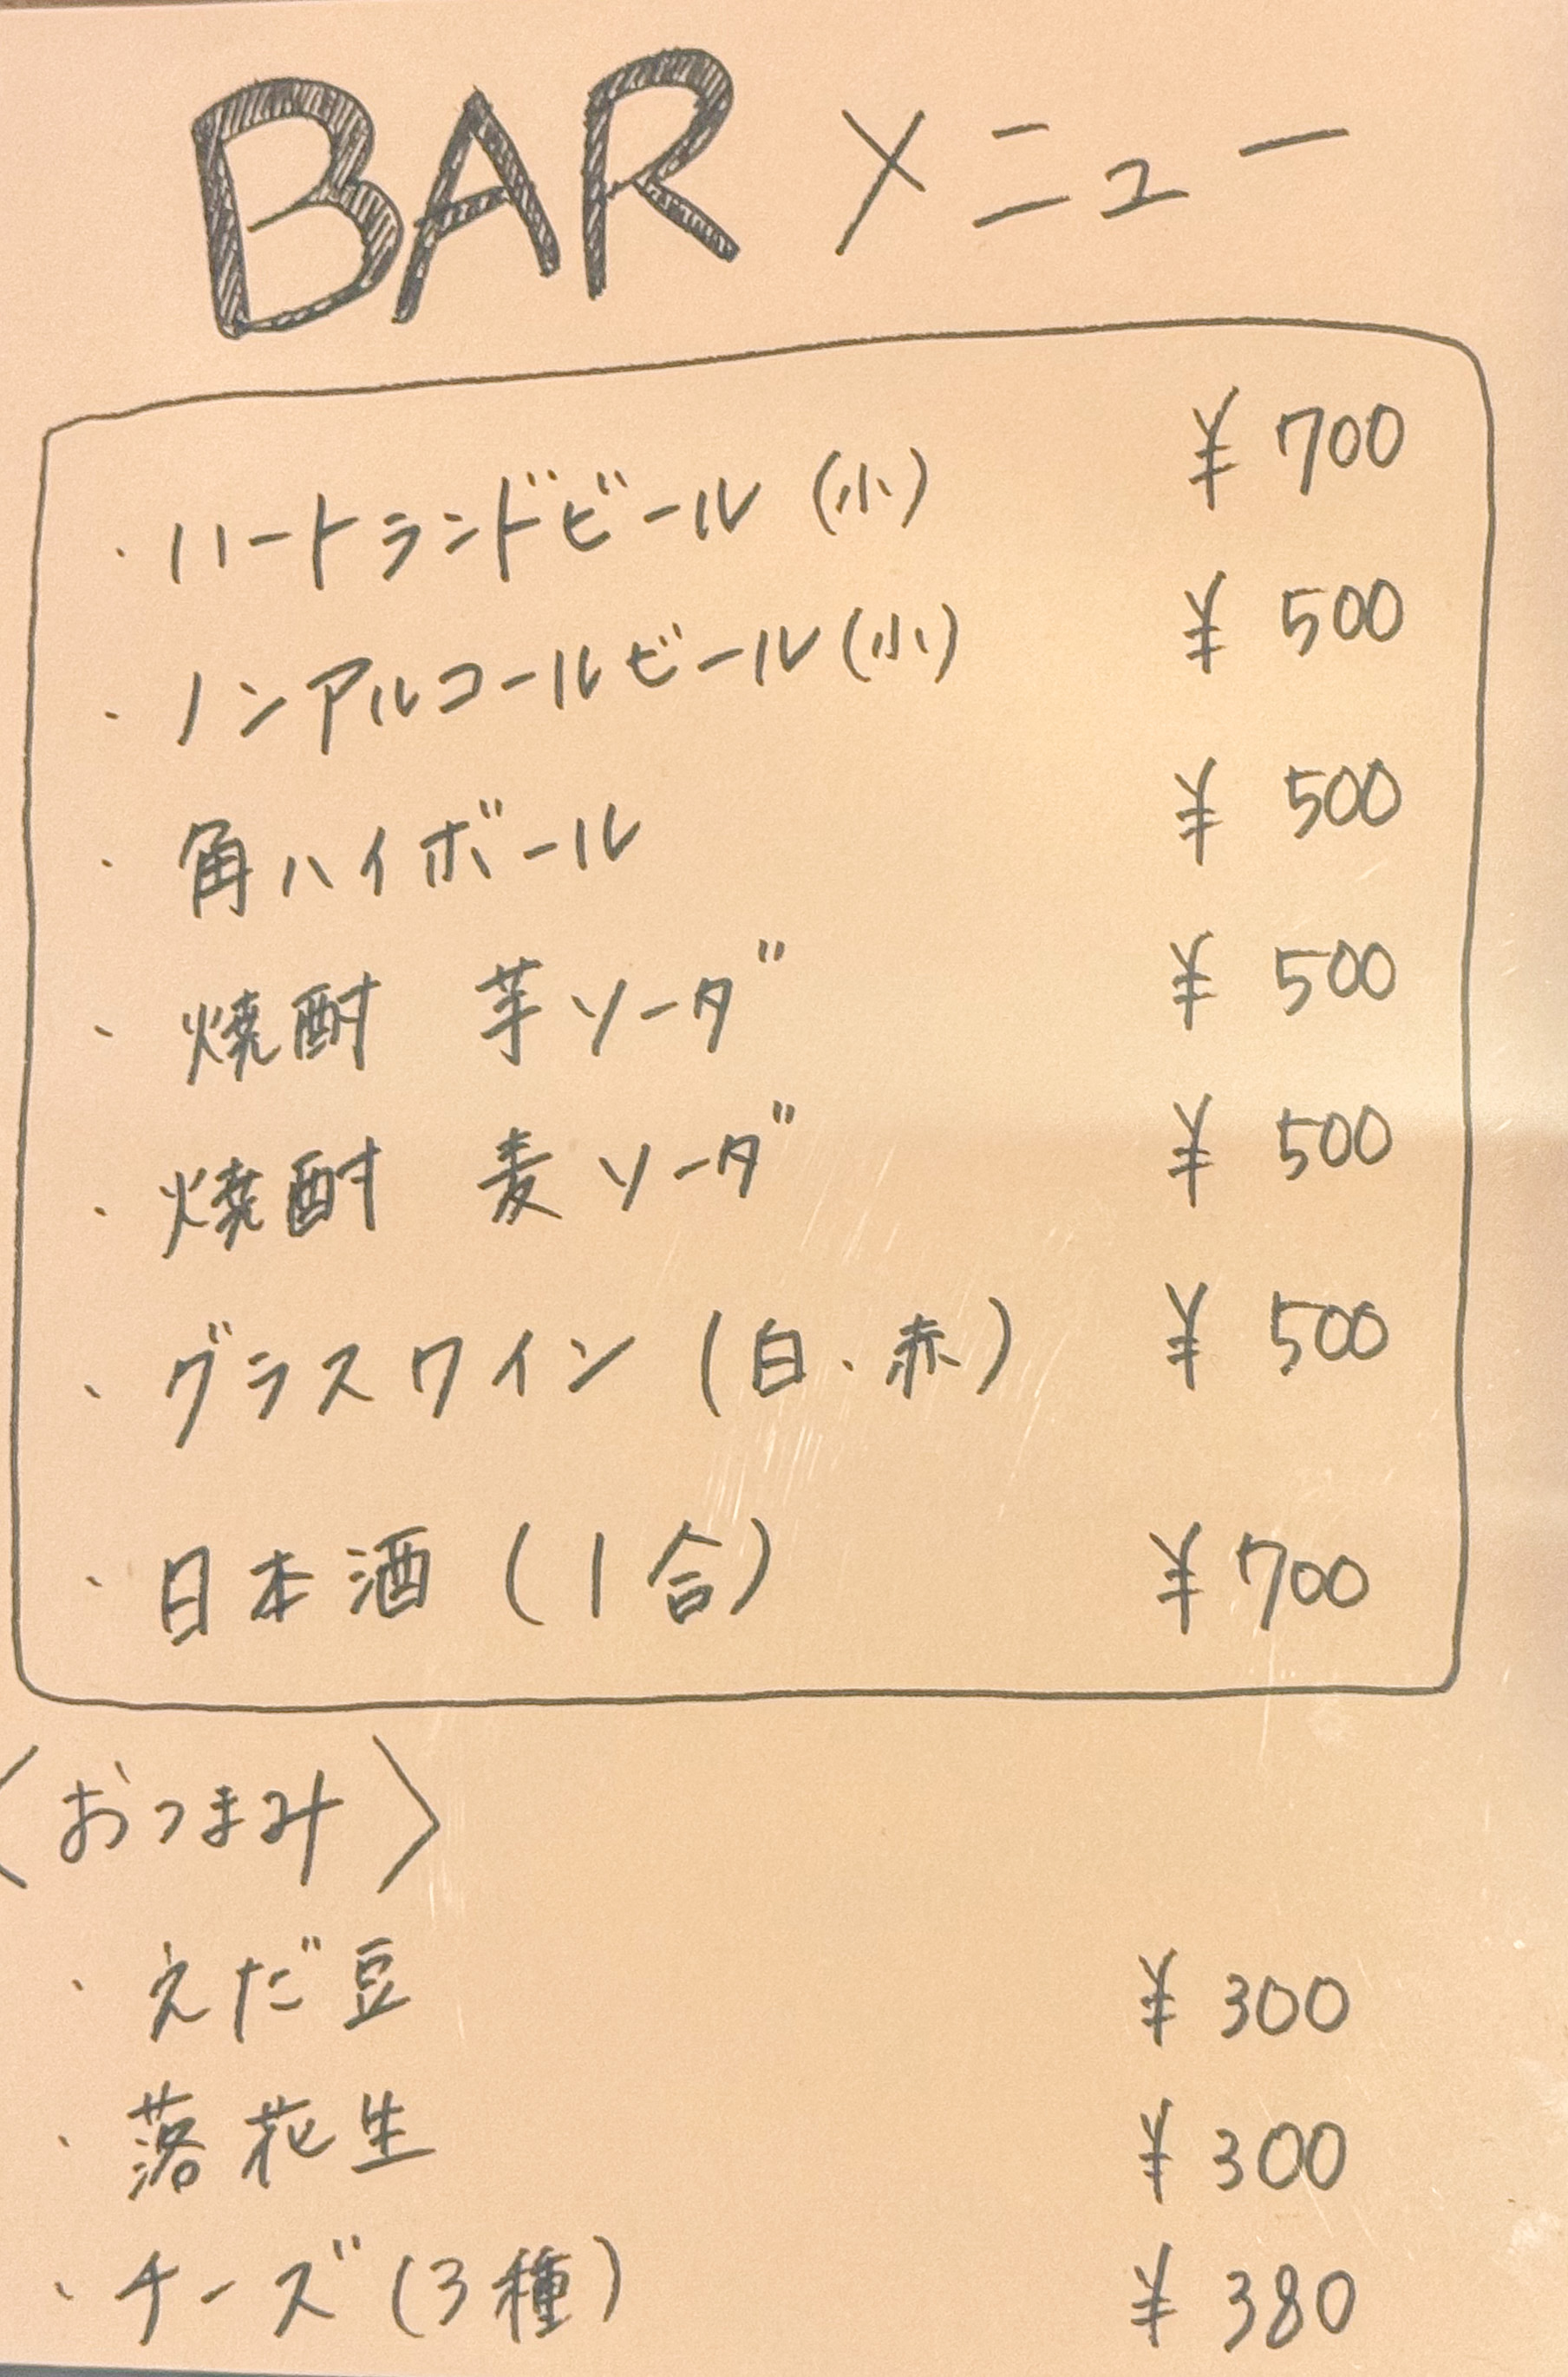 BAR メニュー
・ハートランドビール(小) ¥700
・ノンアルコールビール(小) ¥500
・角ハイボール ¥500
・焼酎 芋ソーダ ¥500
・焼酎 麦ソーダ ¥500
・グラスワイン(白、赤) ¥500
・日本酒(1合) ¥700
〈おつまみ〉
・えだ豆 ¥300
・落花生 ¥300
・チーズ(3種) ¥380